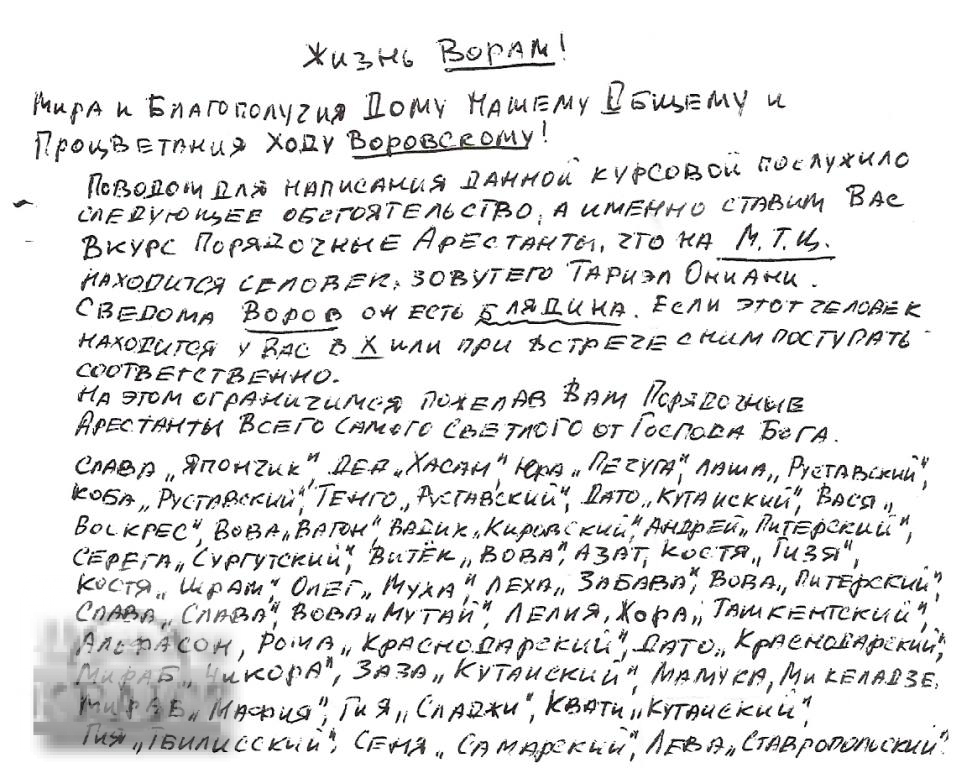 Жизнь Ворам!
Мира и Благополучия Дому Нашему Общему и
Процветания Ходу Воровскому!
Поводом для написания данной курсовой послужило
следующее обстоятельство, а именно ставим Вас
Вкурс Порядочные Арестанты, что на М.Т.Ц.
находится селовек, зовутего Тариэл Ониани.
Сведома Воров он есть блядина. Если этот человек
находится у вас в Х или при встрече с ним поступать
соответственно.
На этом ограничимся пожелав Вам Порядочные
Арестанты Всего Самого Светлого от Господа Бога.
Слава „Япончик", Дед „Хасан", Юра „Печуга", Лаша „Руставский",
Коба „Руставский", Тенго „Руставский", Дато „Кутаиский", Вася „
Воскрес", Вова „Вагон", Вадик „Кировский", Андрей „Питерский",
Серега „Сургутский", Витёк „Вова", Азат, Костя „Гизя",
Костя „Шрам", Олег „Муха", Леха „Забава", Вова „Питерский",
Слава „Слава", Вова „Мутай", Лелия, Хора „Ташкентский",
Альфасон, Рома „Краснодарский", Дато „Краснодарский",
Мираб „Чикора", Заза „Кутаиский", Мамука, Микеладзе,
Мираб „Мафия", Гия „Сладжи", Квати „Кутаиский",
Гия „Тбилисский", Сеня „Самарский", Лева „Ставропольский".